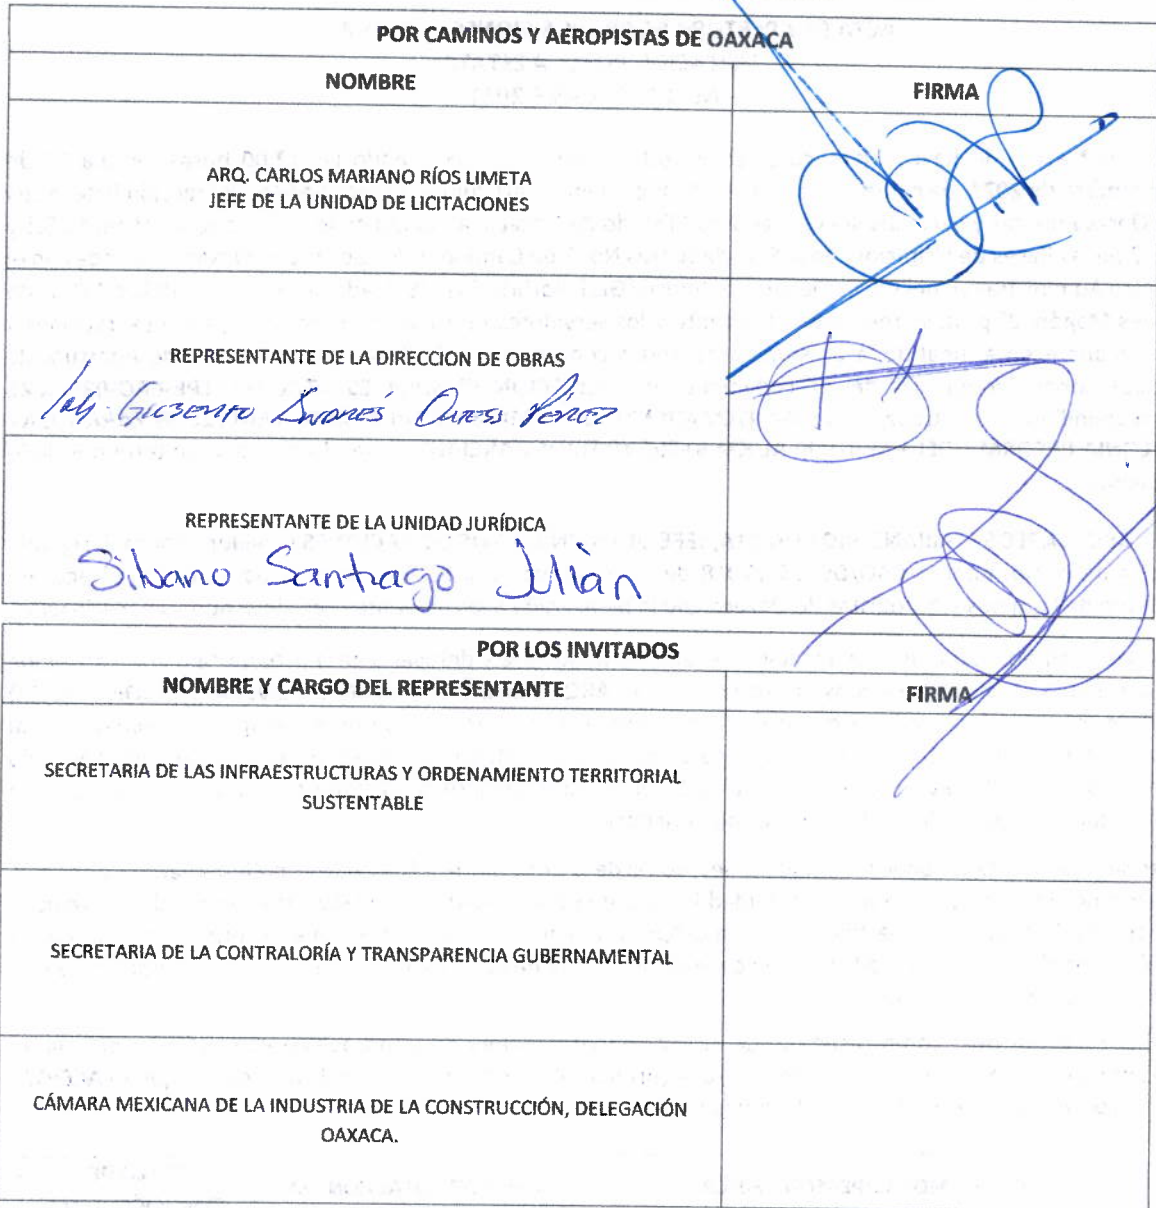 POR CAMINOS Y AEROPISTAS DE OAXACA
NOMBRE
FIRMA
ARQ. CARLOS MARIANO RÍOS LIMETA
JEFE DE LA UNIDAD DE LICITACIONES
REPRESENTANTE DE LA DIRECCION DE OBRAS
Andrés Pérez
REPRESENTANTE DE LA UNIDAD JURÍDICA
Silvano Santiago Julián
POR LOS INVITADOS
NOMBRE Y CARGO DEL REPRESENTANTE
FIRMA
SECRETARIA DE LAS INFRAESTRUCTURAS Y ORDENAMIENTO TERRITORIAL
SUSTENTABLE
SECRETARIA DE LA CONTRALORÍA Y TRANSPARENCIA GUBERNAMENTAL
CÁMARA MEXICANA DE LA INDUSTRIA DE LA CONSTRUCCIÓN, DELEGACIÓN
OAXACA.